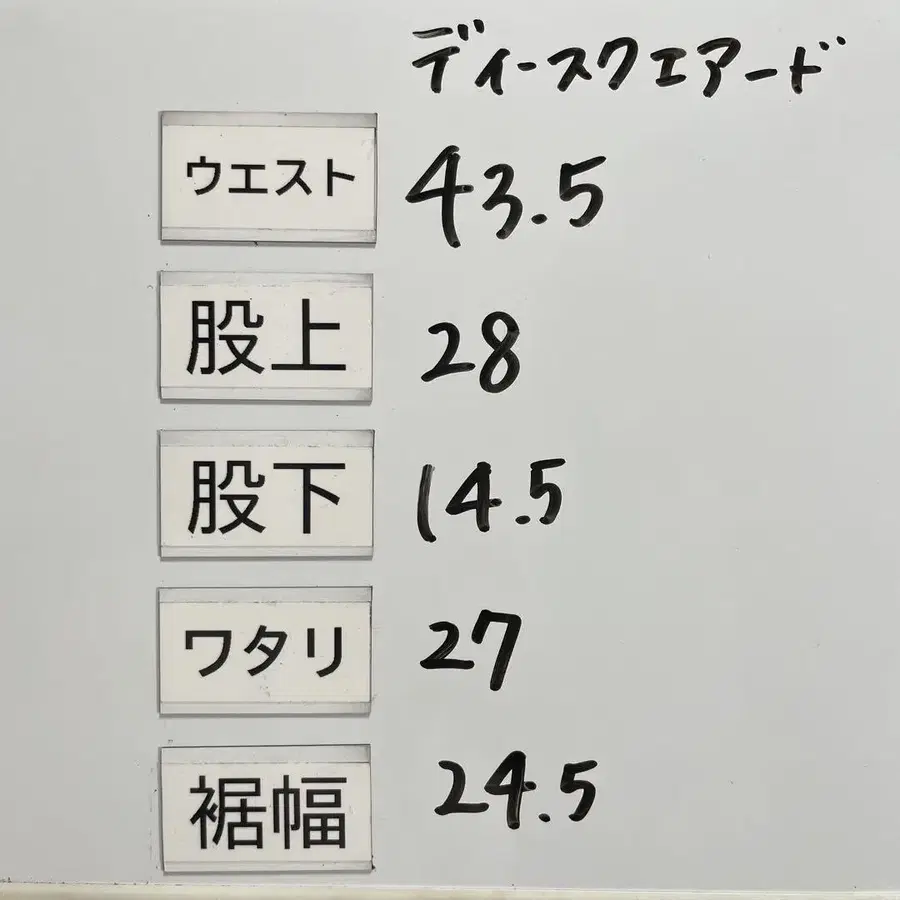 ディースクエアード
ウエスト 43.5
股上 28
股下 14.5
ワタリ 27
裾幅 24.5